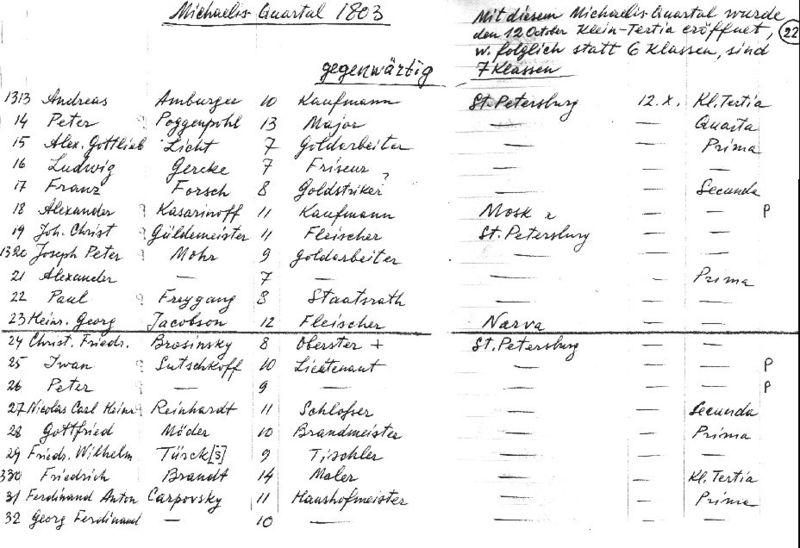 Michaelis Quartal 1803
Mit diesem Michaelis-Quartal wurde
den 12 October Klein-Tertia eröffnet,
w. folglich statt 6 Klassen, sind
7 Klassen
22
gegenwärtig
1313 Andreas Amburger 10 Kaufmann St. Petersburg 12. X. Kl. Tertia
14 Peter ? Poggenpohl 13 Major — — Quarta
15 Alex. Gottlieb Licht 7 Goldarbeiter — — Prima
16 Ludwig Gercke 7 Friseur — — —
17 Franz Forsch 8 Goldstriker ? — — Secunda
18 Alexander ? Kasarinoff 11 Kaufmann Mosk — — P
19 Joh. Christ ? Güldemeister 11 Fleischer St. Petersburg — —
1320 Joseph Peter Mohr 9 Goldarbeiter — — —
21 Alexander — 7 — — — Prima
22 Paul ? Freygang 8 Staatsrath — — —
23 Heinr. Georg Jacobson 12 Fleischer Narva — —
24 Christ. Friedr. Brosinsky 8 Oberster + St. Petersburg — —
25 Iwan ? Sutschkoff 10 Lieutenant — — — P
26 Peter ? — 9 — — — — P
27 Nicolas Carl Heinr Reinhardt 11 Schlosser — — Secunda
28 Gottfried Möder 10 Brandmeister — — Prima
29 Friedr. Wilhelm Tüsck[s] 9 Tischler — — —
330 Friedrich Brandt 14 Maler — — Kl. Tertia
31 Ferdinand Anton Carpovsky 11 Haushofmeister — — Prima
32 Georg Ferdinand — 10 — — — —